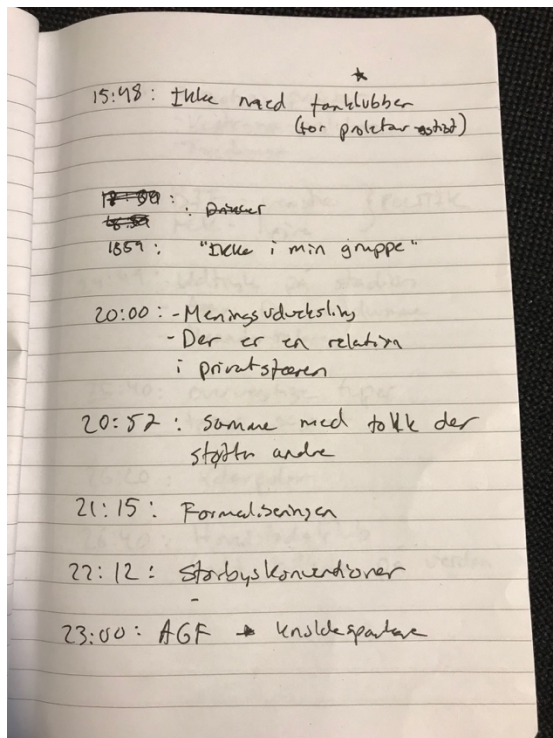 15:48: Ikke med fanklubber
(for proletar
: Drikker
1859: "Ikke i min gruppe"
20:00: - Meningsudveksling
- Der er en relation
i privatsfæren
20:52: samme med folk der
støtter andre
21:15: Formaliseringen
22:12: Storbyskonventioner
-
23:00: AGF → knoldesparkere